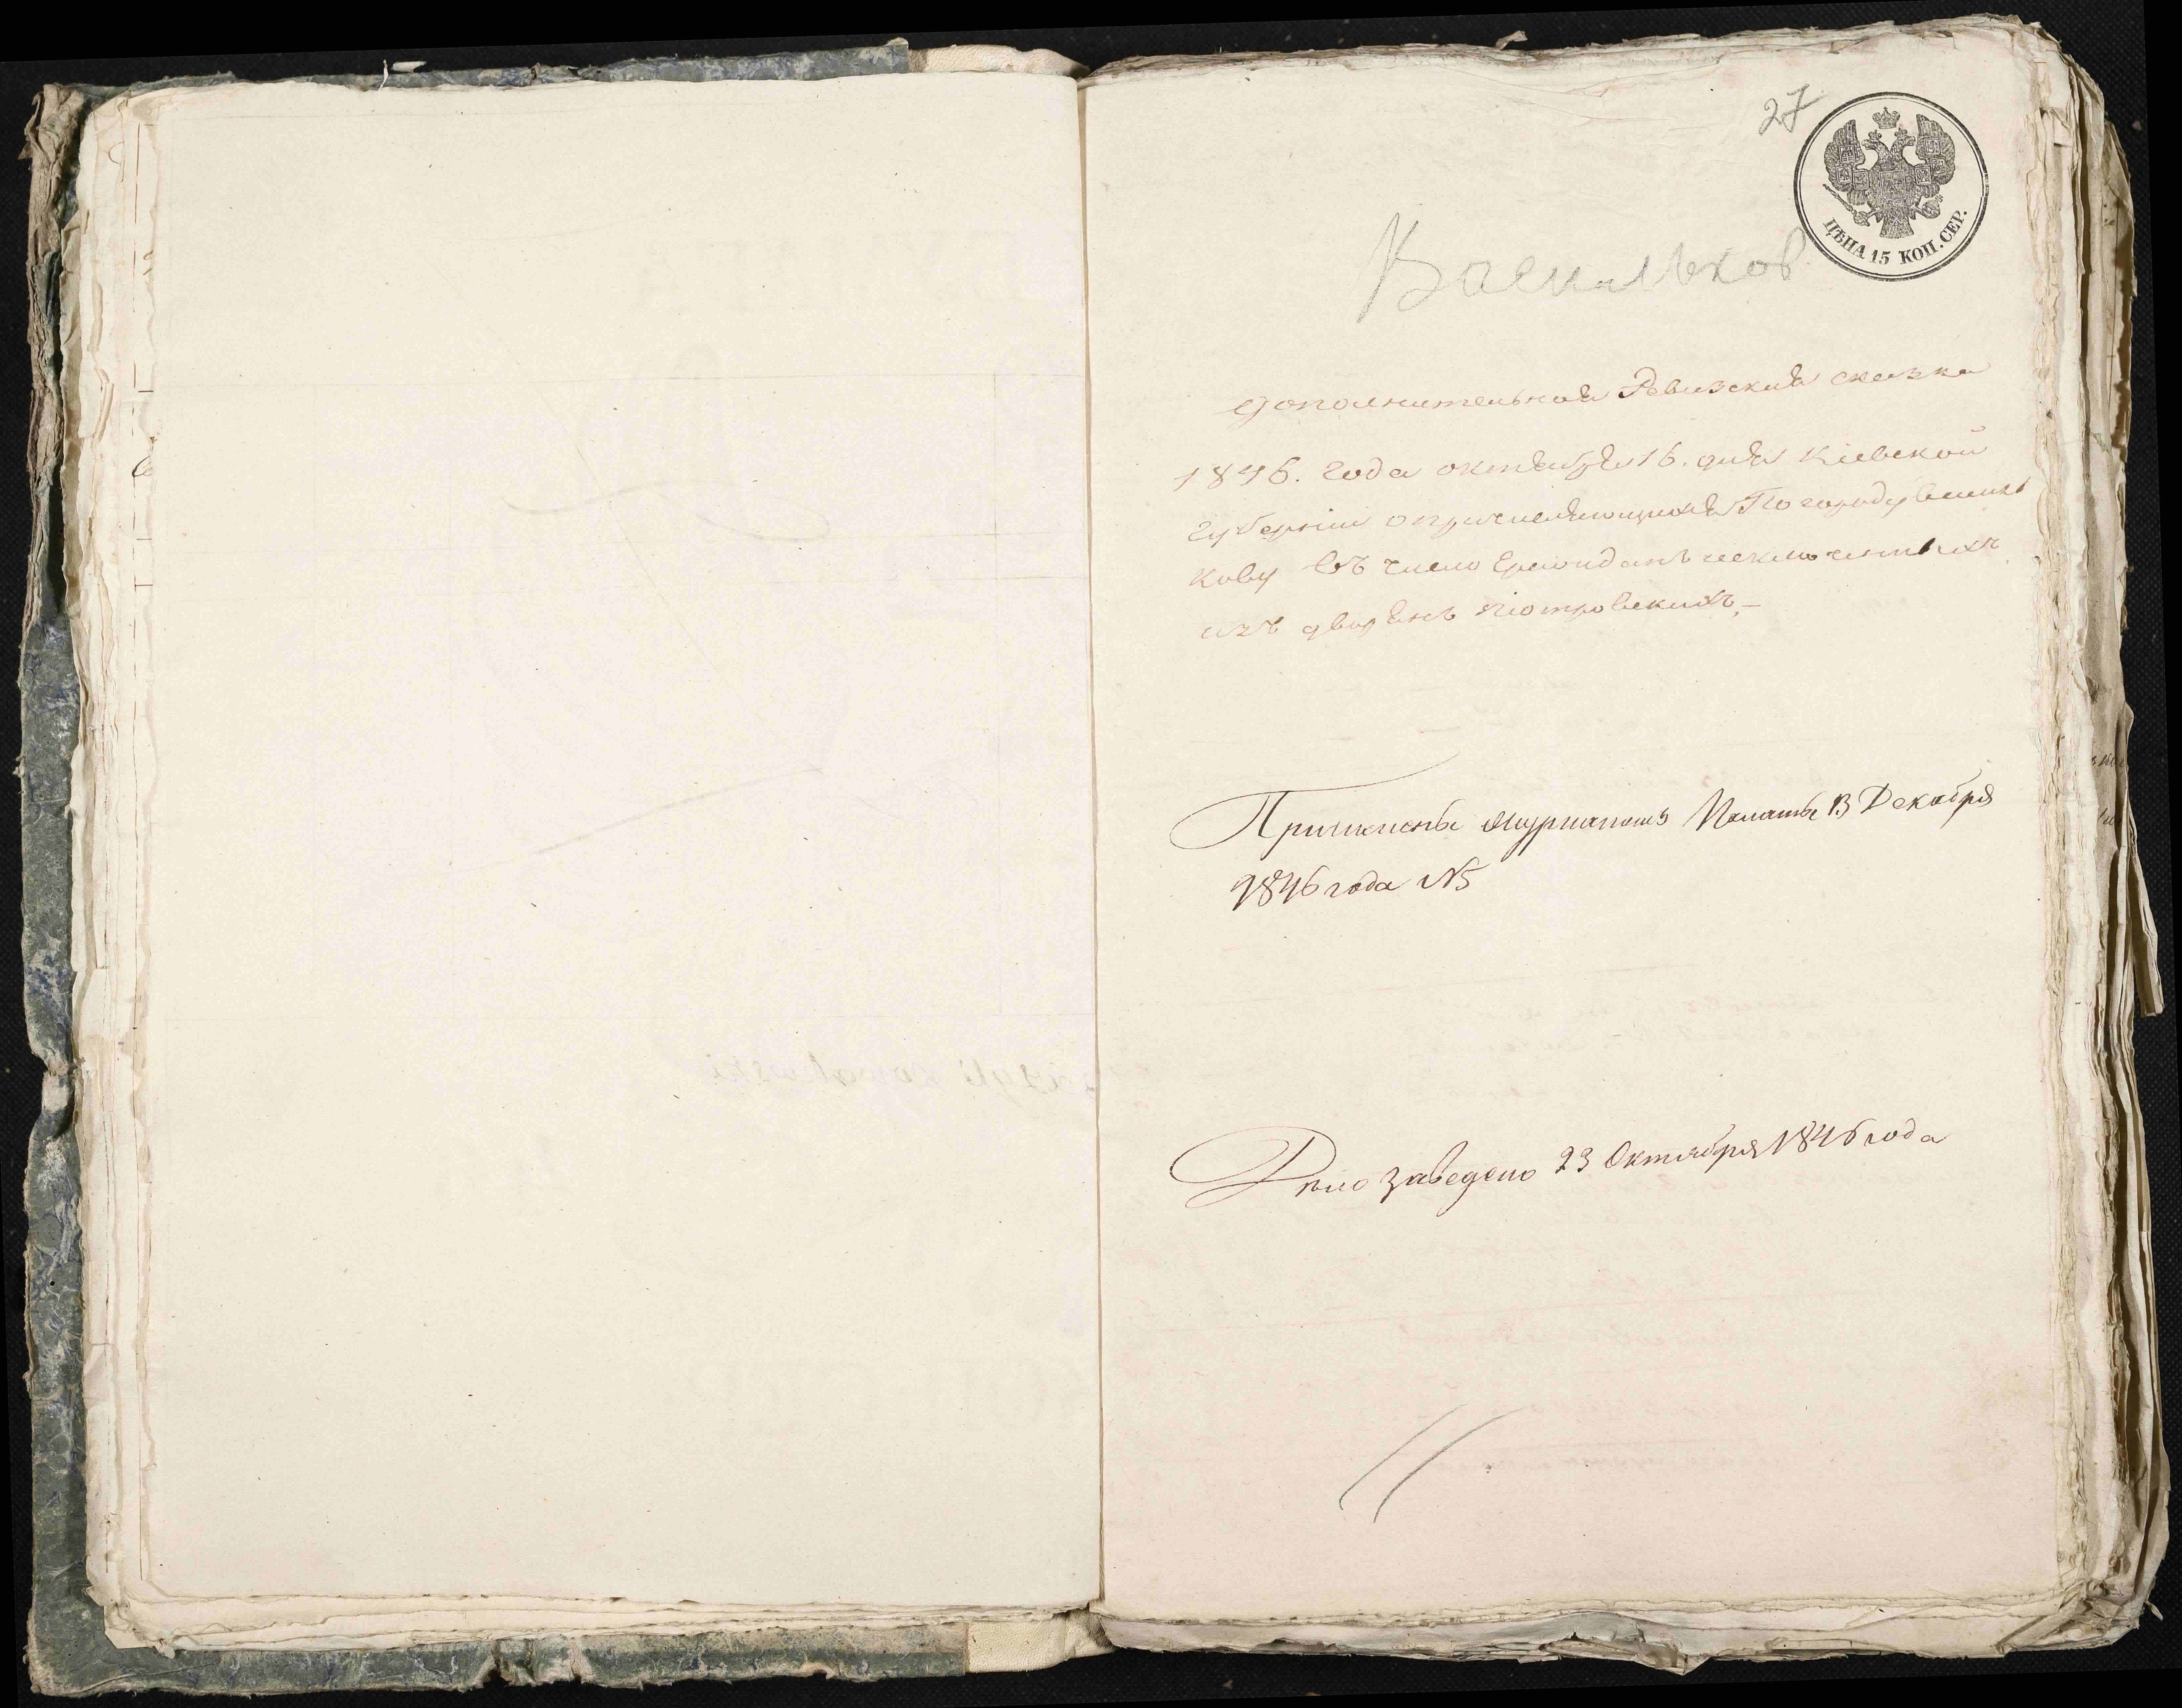 27
ЦѢНА 15 КОП. СЕР.
Васильков
Дополнительная Ревизская сказка
1846. года октября 16. дня Кіевской
губерніи о причисляющихся По городу Василь
кову въ число Гражданъ исключенныхъ
изъ дворянъ Піотровскихъ.
Причислены журналомъ Палаты 13 Декабря
1846 года №5
Дѣло заведено 23 Октября 1846 года